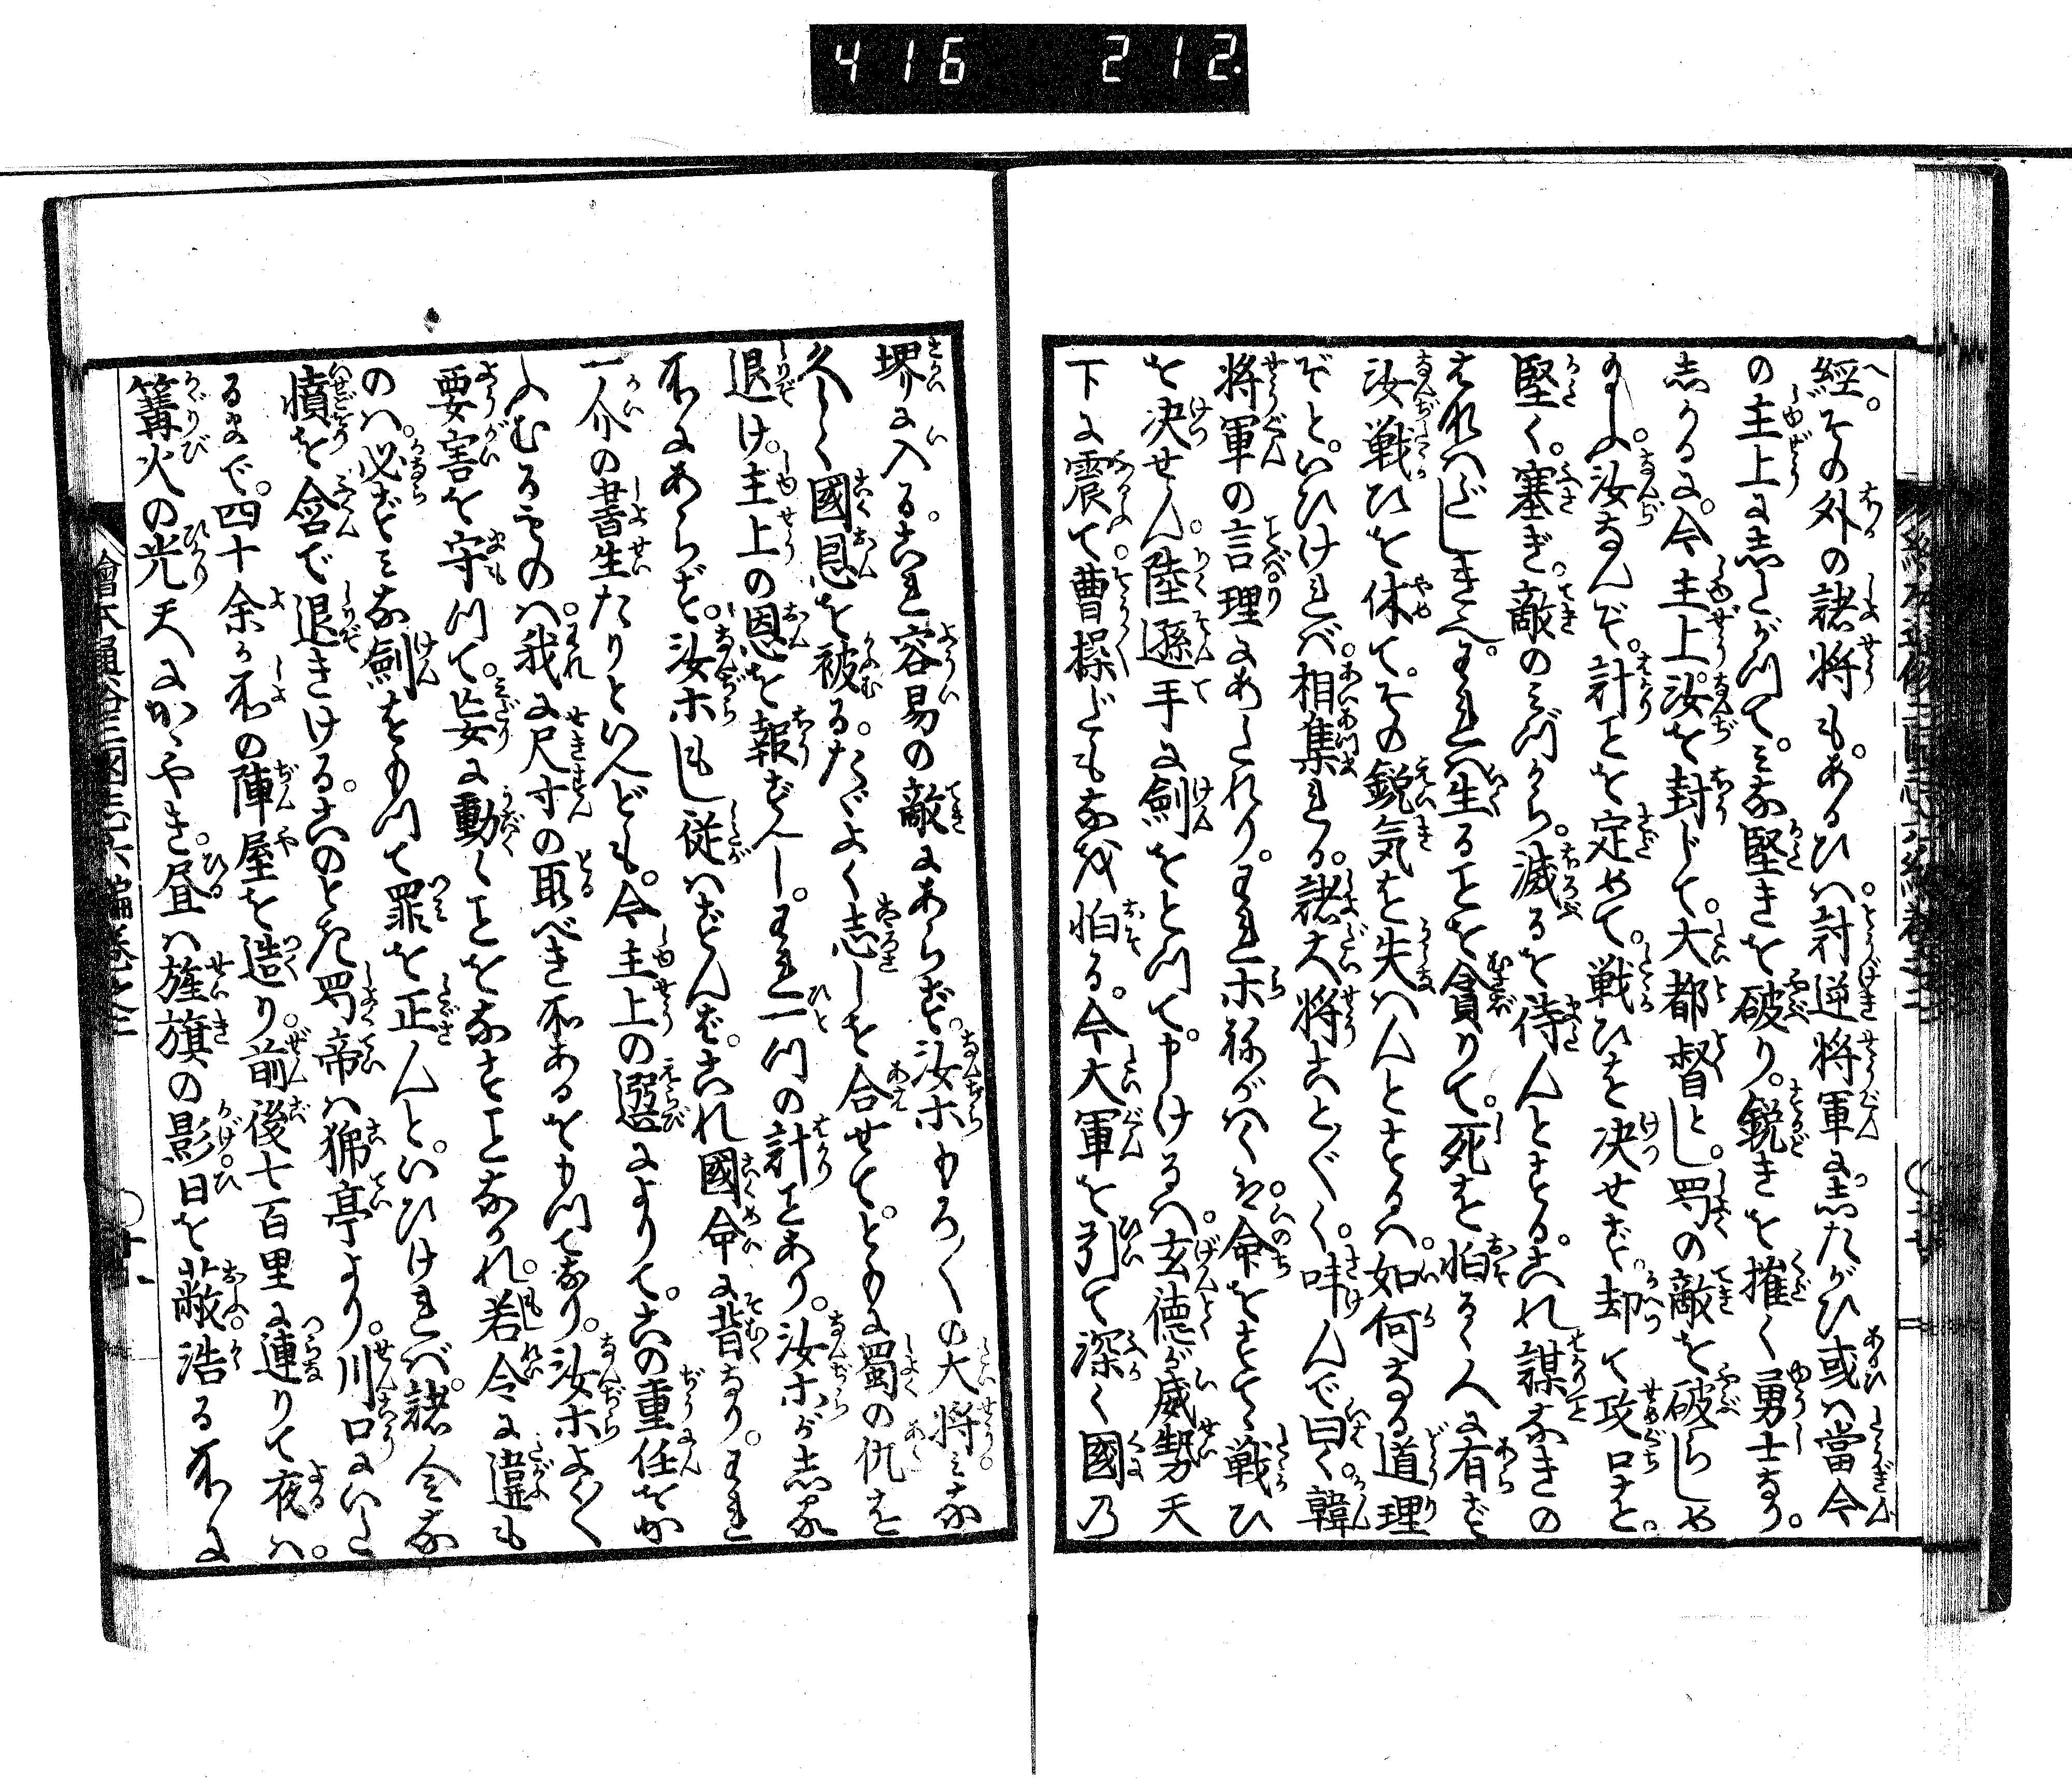 416 212
經。その外の諸将も。あるひハ討逆将軍に志たがひ或ハ當今
の主上に志たがつて。ミな堅きを破り。鋭きを摧く勇士なり。
志かるに。今主上汝を封じて。大都督とし。蜀の敵を破らしめ
汝なんぞ。計ことを定めて。戦ひを决せず。却て攻口を。
堅く。塞ぎ。敵のミづから。滅るを待んとする。これ謀なきの
生ることを貪りて。死を怕るゝ人に有ず
汝戦ひを休て。その鋭気を失ハんとするハ。如何なる道理
ぞと。いひけれバ。相集れる。諸大将ことごとく。呌んで曰く。韓
将軍の言理にあたれり。われホ命をすてゝ戦ひ
を决せん。陸遜手に劍をとつて。申けるハ。玄德が威勢天
下に震て。曹操だも怕る。今大軍を引て深く國乃
堺に入る。これ容易の敵にあらず。汝ホもろ〱の大将ミな
久しく國恩を被る。たゞよく志しを合せて。ともに蜀の仇を
退け。主上の恩を報ずべし。われ一つの計ことあり。汝ホが志る
所にあらず。汝ホもし従ハずんば。これ國命に背なり。われ
一介の書生たりといへども。今主上の選によりて。この重任をか
ふむるものハ。我に尺寸の取べき所あるをもつてなり。汝ホよく〱
要害を守つて。妄に動くことをなすことなかれ。若令に違も
のハ。必ずミな劍をもつて罪を正んと。いひけれバ。諸人ミな
憤を含で退きける。このとき蜀帝ハ猇亭より。川口にいた
るまで。四十余ヶ所の陣屋を造り。前後七百里に連りて夜ハ。
篝火の光天にかゝやき。昼ハ旌旗の影日を蔽浩る所に